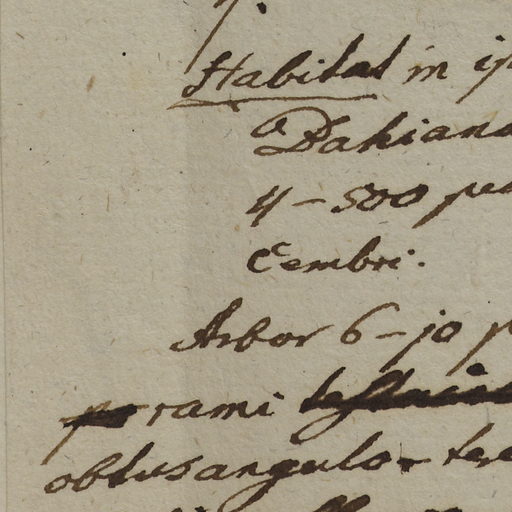 Habitat in
a Dahiana
4-500
Cembri.
Arbor 6-10
rami
obtusangulo-tere